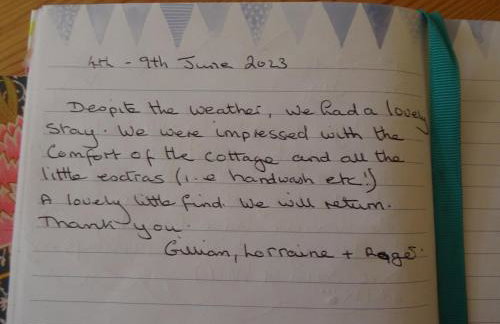 4th - 9th June 2023
Despite the weather, we had a lovely
stay. We were impressed with the
comfort of the cottage and all the
little extras (i.e handwash etc!)
A lovely little find. We will return.
Thank you.
Gillian, Lorraine + Roger.